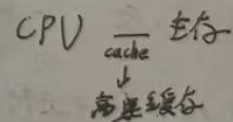 CPU 主存
cache
↓
高速缓存